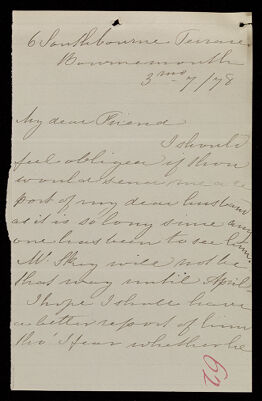 6 Southbourne Terrace
Bournemouth
3 mo 7/78
My dear Friend
I should
feel obliged if thou
would send me a re
port of my dear husband
as it is so long since any
one has been to see him.
Mr. will not be
that way until April
I hope I shall have
a better report of him
tho' I fear whether he
62